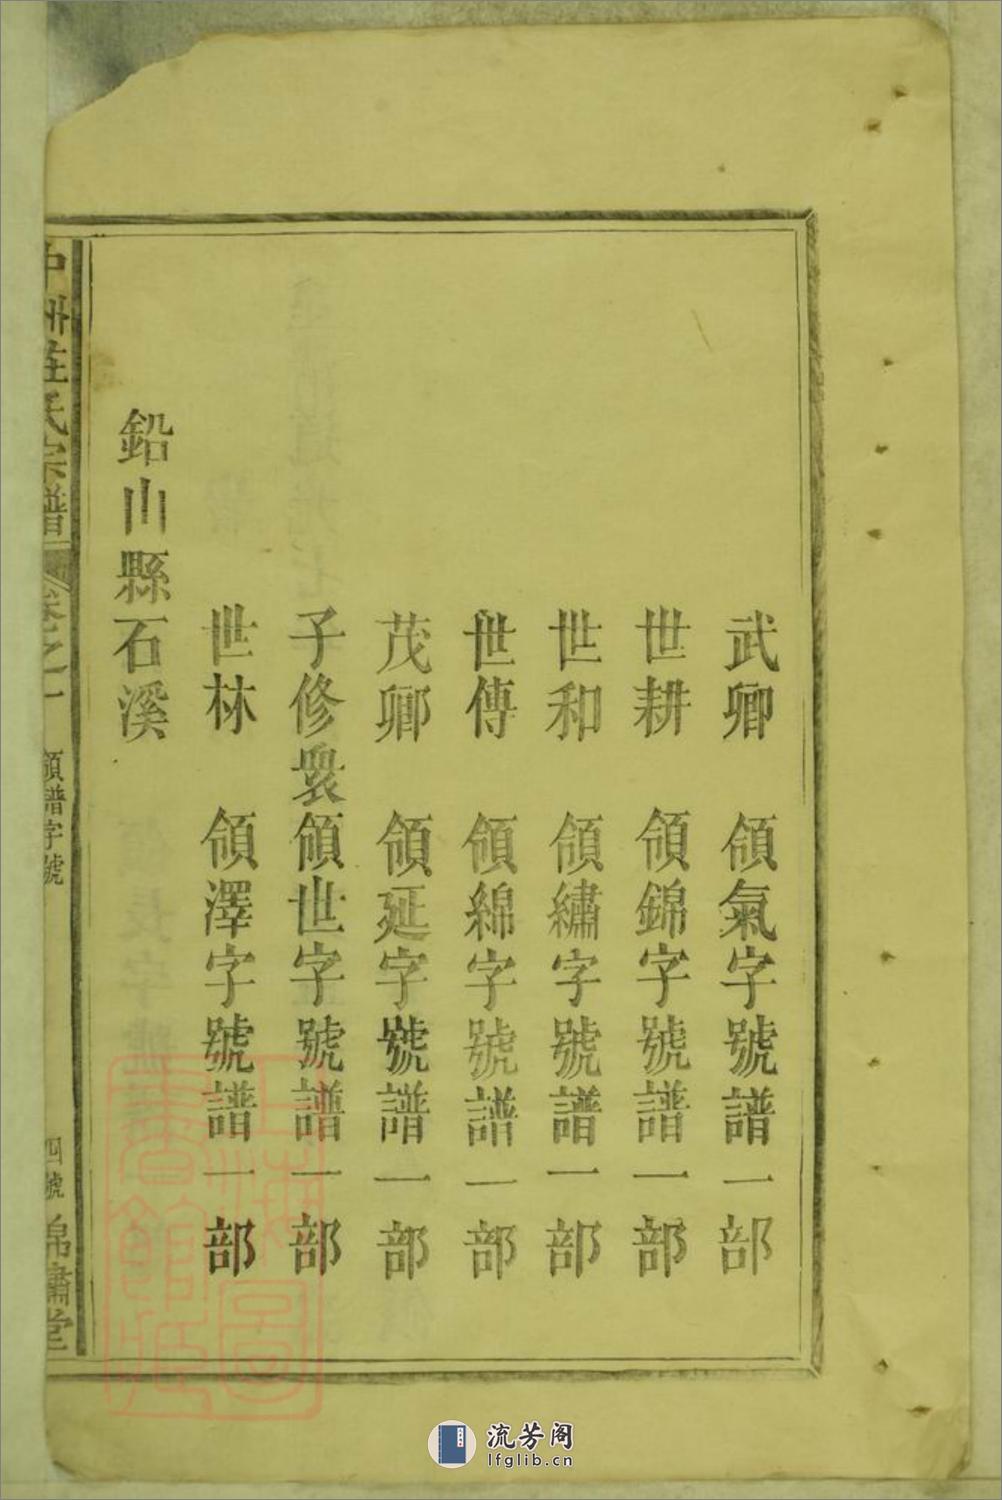 武卿　領氣字號譜一部
世耕　領錦字號譜一部
世和　領繡字號譜一部
世傳　領綿字號譜一部
茂卿　領延字號譜一部
子修衆領世字號譜一部
世林　領澤字號譜一部
鉛山縣石溪
中洲莊氏宗譜
卷之一
領譜字號
四號
錦繡堂
上海圖書館藏
流芳阁
lfglib.cn